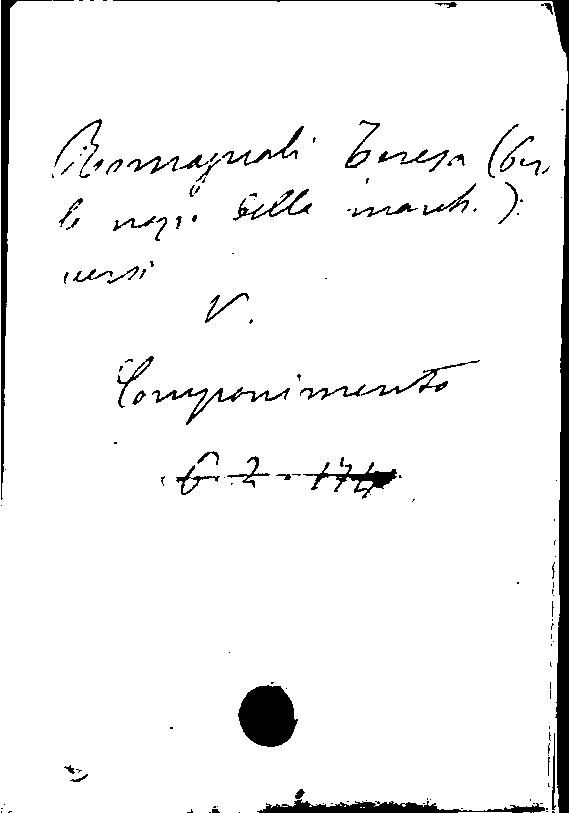 Romagnoli Teresa (Per
le nozze della march.):
versi
V.
Componimento
6. 2. 174